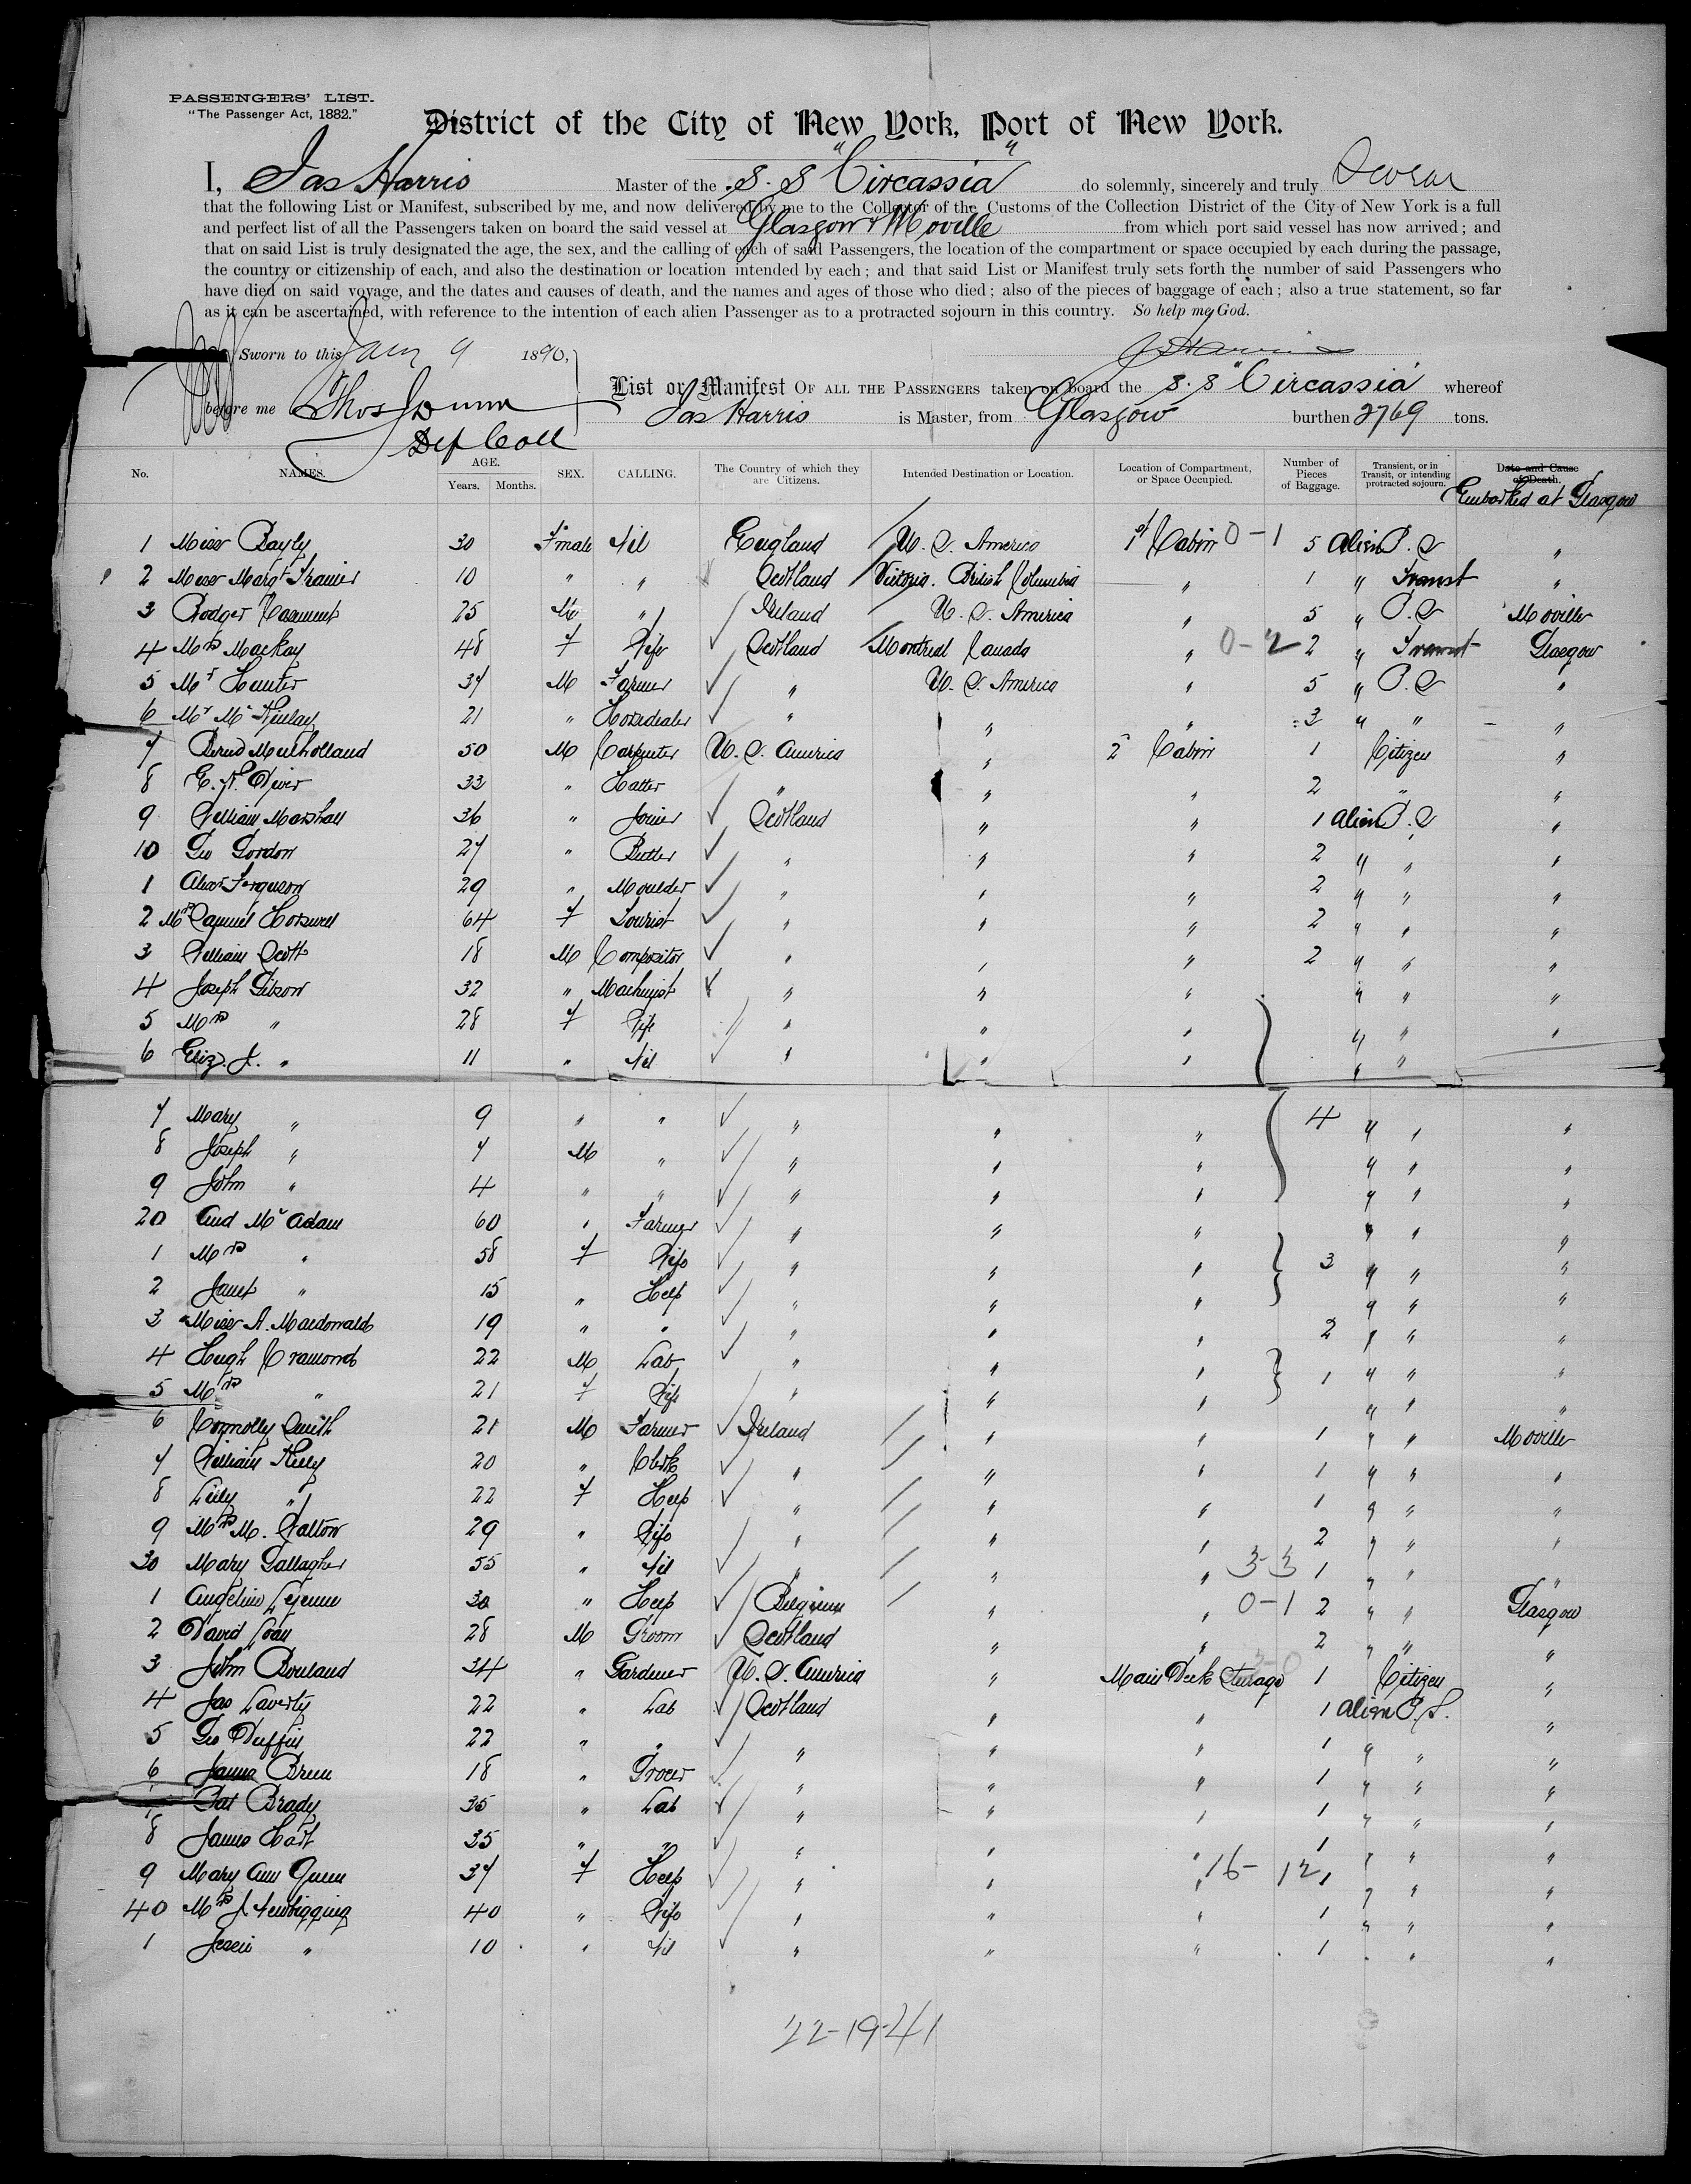 PASSENGERS' LIST.
"The Passenger Act, 1882."
District of the City of New York, Port of New York.
I, Jas Harris Master of the S.S "Circassia" do solemnly, sincerely and truly Swear
that the following List or Manifest, subscribed by me, and now delivered by me to the Collector of the Customs of the Collection District of the City of New York is a full
and perfect list of all the Passengers taken on board the said vessel at Glasgow & Moville from which port said vessel has now arrived; and
that on said List is truly designated the age, the sex, and the calling of each of said Passengers, the location of the compartment or space occupied by each during the passage,
the country or citizenship of each, and also the destination or location intended by each; and that said List or Manifest truly sets forth the number of said Passengers who
have died on said voyage, and the dates and causes of death, and the names and ages of those who died; also of the pieces of baggage of each; also a true statement, so far
as it can be ascertained, with reference to the intention of each alien Passenger as to a protracted sojourn in this country. So help me God.
Sworn to this Jany 9 1890, J Harris
before me Thos J Dunn
Dep Coll
List or Manifest OF ALL THE PASSENGERS taken on board the S.S "Circassia" whereof
Jas Harris is Master, from Glasgow burthen 2769 tons.
No. NAMES. AGE. Years. Months. SEX. CALLING. The Country of which they are Citizens. Intended Destination or Location. Location of Compartment, or Space Occupied. Number of Pieces of Baggage. Transient, or in Transit, or intending protracted sojourn. Date and Cause of Death.
Embarked at Glasgow
1 Miss Bayly 30 Female Nil England U.S. America 1st Cabin 0-1 5 Alien P.S "
2 Miss Margt 10 " " Scotland Victoria. British Columbia " 1 " Transit "
3 Rodger Casement 25 M " Ireland U.S. America " 5 " P.S Moville
4 Mrs Mackay 48 F Wife Scotland Montreal Canada " 0-2 2 " Transit Glasgow
5 Mr Hunter 37 M Farmer " U.S. America " 5 " P.S "
6 Mr McKinlay 21 " Horsedealer " " " 3 " " "
7 Mulholland 50 M Carpenter U.S. America " 2 Cabin 1 Citizen "
8 33 " Hatter " " " 2 " "
9 William Marshall 36 " Joiner Scotland " " 1 Alien P.S "
10 Geo Gordon 27 " Butler " " " 2 " " "
1 Alexr Ferguson 29 " Moulder " " " 2 " " "
2 Mrs Samuel 64 F Tourist " " " 2 " " "
3 William Scott 18 M Compositor " " " 2 " " "
4 Joseph Gibson 32 " Machinist " " " " " "
5 Mrs " 28 F Wife " " " " " "
6 Eliz. J. " 11 " Nil " " " " "
7 Mary " 9 " " " " " 4 " " "
8 Joseph " 7 M " " " " " " "
9 John " 4 " " " " " " " "
20 And McAdam 60 " Farmer " " " " " "
1 Mrs " 58 F Wife " " " 3 " " "
2 Janet " 15 " Help " " " " " "
3 Miss A. Macdonald 19 " " " " " 2 " " "
4 Hugh Cramond 22 M Lab " " " 1 " " "
5 Mrs " 21 F Wife " " " " " "
6 Connolly Smith 21 M Farmer Ireland " " 1 " " Moville
7 William Kiely 20 " Clerk " " " 1 " " "
8 Lily " 22 F Help " " " 1 " " "
9 Mrs M. 29 " Wife " " " 2 " " "
30 Mary Gallagher 55 " Nil " " " 3-3 1 " " "
1 30 " Help Belgium " " 0-1 2 " " Glasgow
2 David 28 M Groom Scotland " " 2 " " "
3 John 34 " Gardener U.S. America " Main Deck Steerage 1 Citizen "
4 Jas Laverty 22 " Lab Scotland " " 1 Alien P.S. "
5 Geo Duffin 22 " " " " " 1 " " "
6 James Breen 18 " Grocer " " " 1 " " "
7 Pat Brady 35 " Lab " " " 1 " " "
8 James Hart 35 " " " " " 1 " " "
9 Mary Ann Quinn 37 F Help " " " 16-12 1 " " "
40 Mrs J. Newbigging 40 " Wife " " " 1 " " "
1 Jessie " 10 " Nil " " " 1 " " "
22-19-41